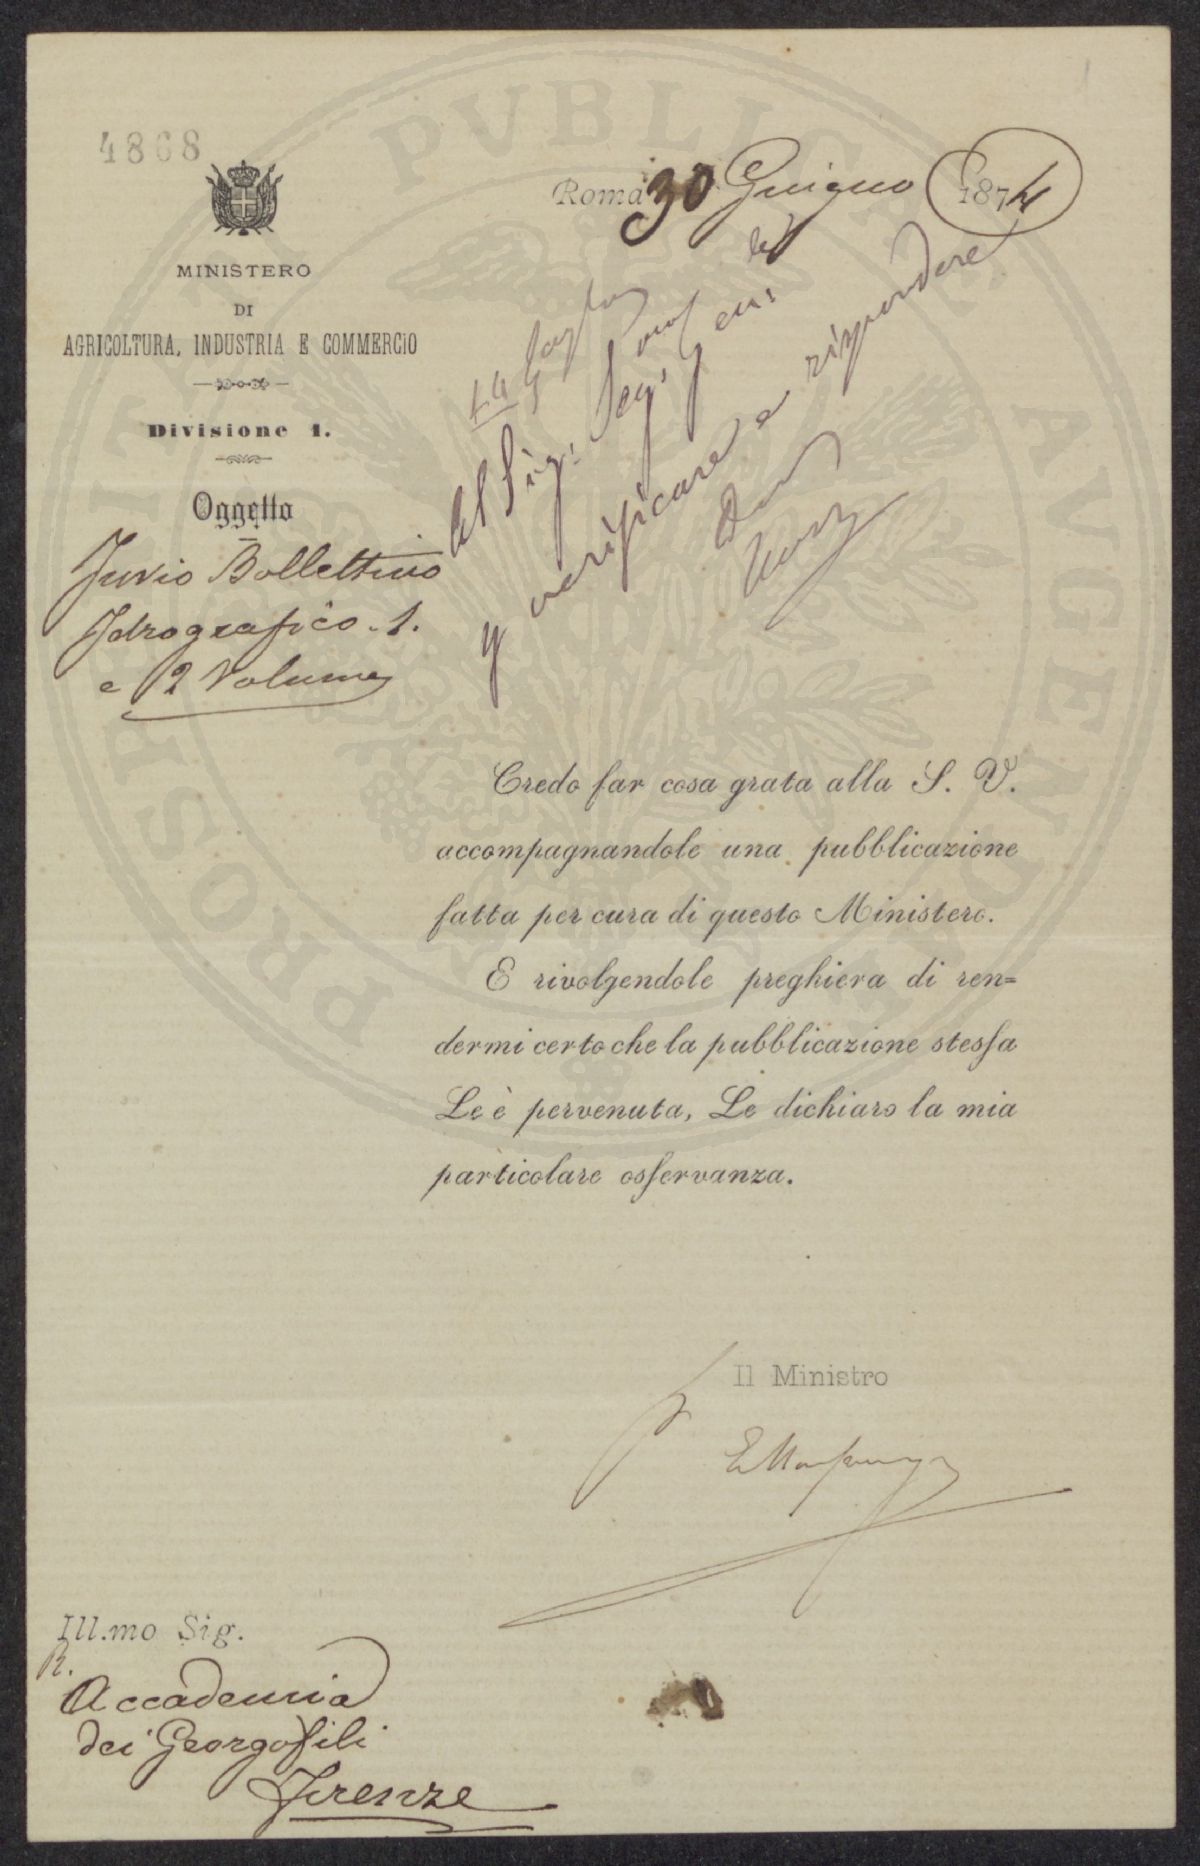 4868
Roma 30 Giugno 1874
MINISTERO
DI
AGRICOLTURA, INDUSTRIA E COMMERCIO
Divisione 1.
Oggetto
Invio Bollettino
Idrografico. 1.
e 2 Volume
14
Al Sig. Seg. Gen.
verificare e rispondere
Credo far cosa grata alla S. V.
accompagnandole una pubblicazione
fatta per cura di questo Ministero.
E rivolgendole preghiera di ren=
dermi certo che la pubblicazione stessa
Le è pervenuta, Le dichiaro la mia
particolare osservanza.
Il Ministro
Ill.mo Sig.
R.
Accademia
dei Georgofili
Firenze
PROSPERITATI PVBLICAE AVGENDAE